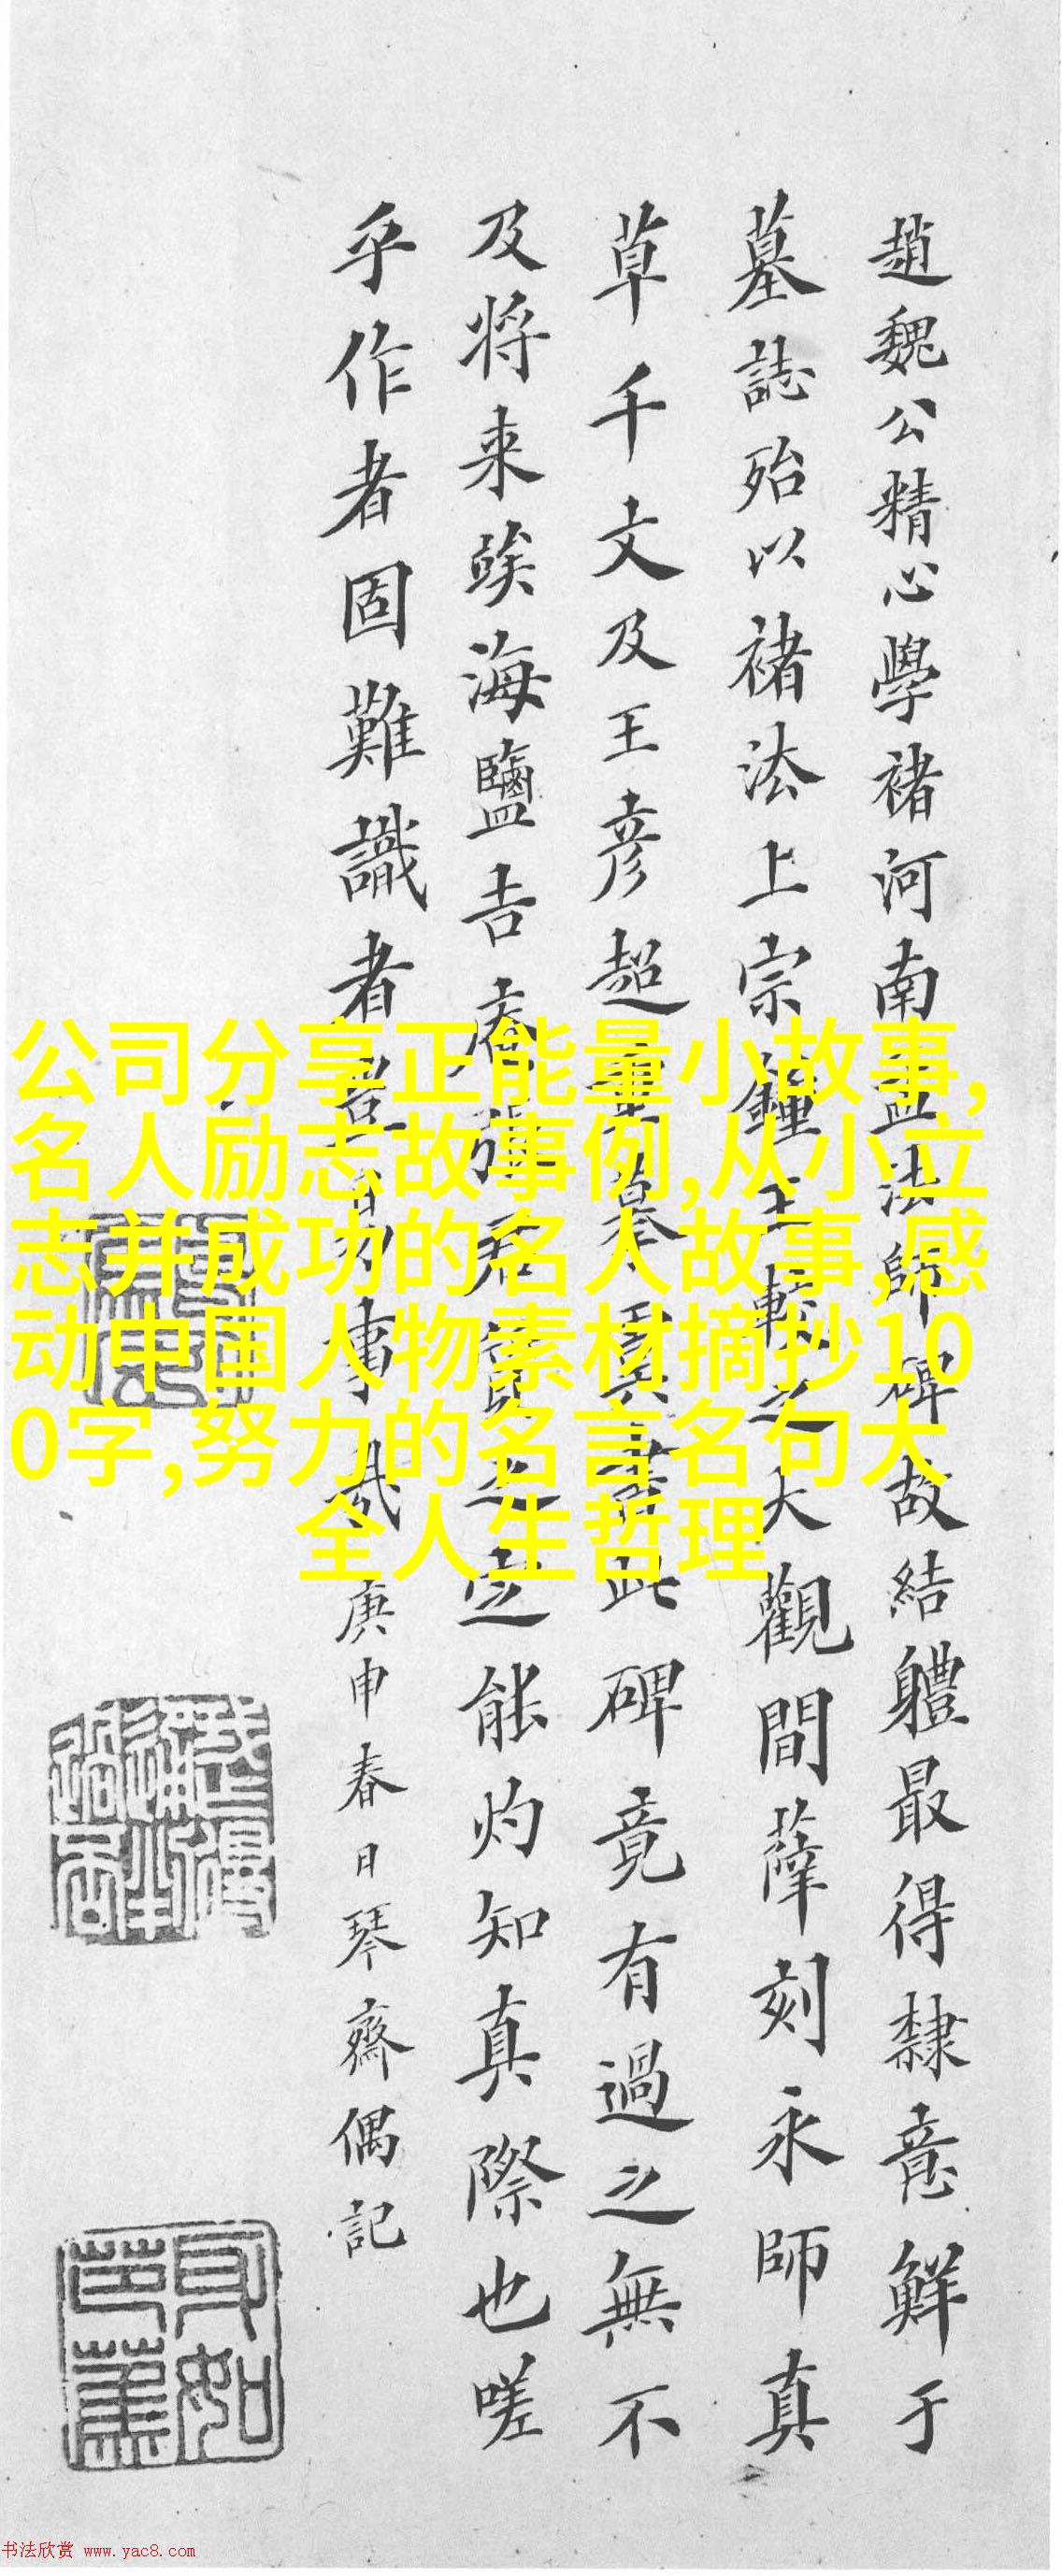 趙魏公精心學褚河南孟法師碑故結軆最得隸意鮮于
墓誌殆以褚法上宗鍾王較之大觀間薛刻永師真
草千文及王彦超重摹虞書此碑竟有過之無不
及將来竢海鹽吉庵張君質之定能灼知真際也嗟
乎作者固難識者豈易事哉
庚申春日琴齋偶記
公司分享正能量小故事,
名人励志故事例,从小立
志并成功的名人故事,感
动中国人物素材摘抄10
0字,努力的名言名句大
全人生哲理
书法欣赏 www.yac8.com